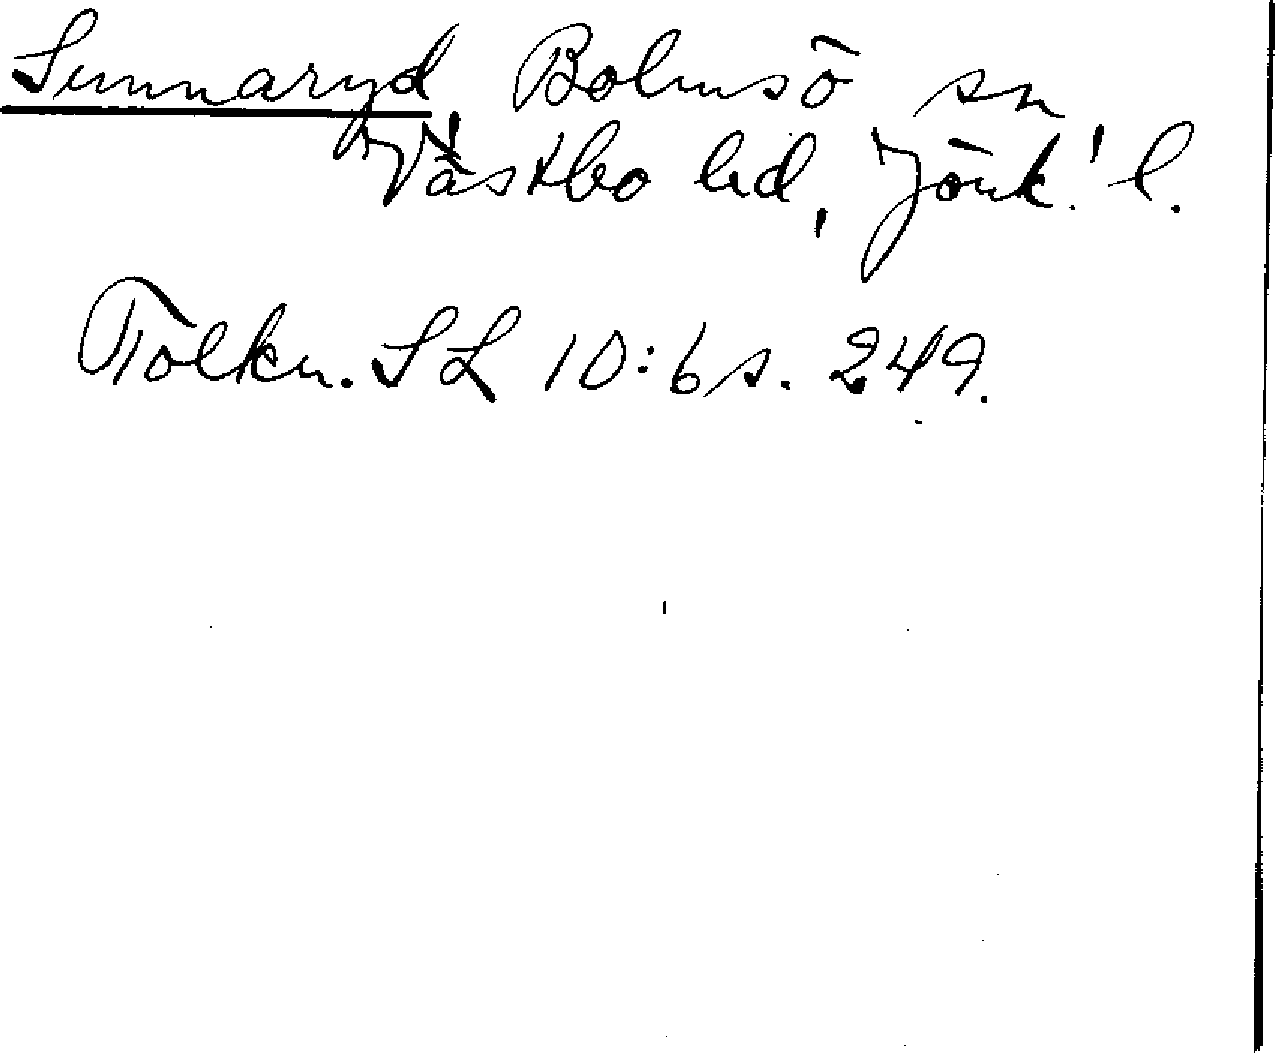 Sunnaryd, Bolmsö sn
Västbo hd, Jönk. l.
Tolkn. SL 10:6 s. 249.